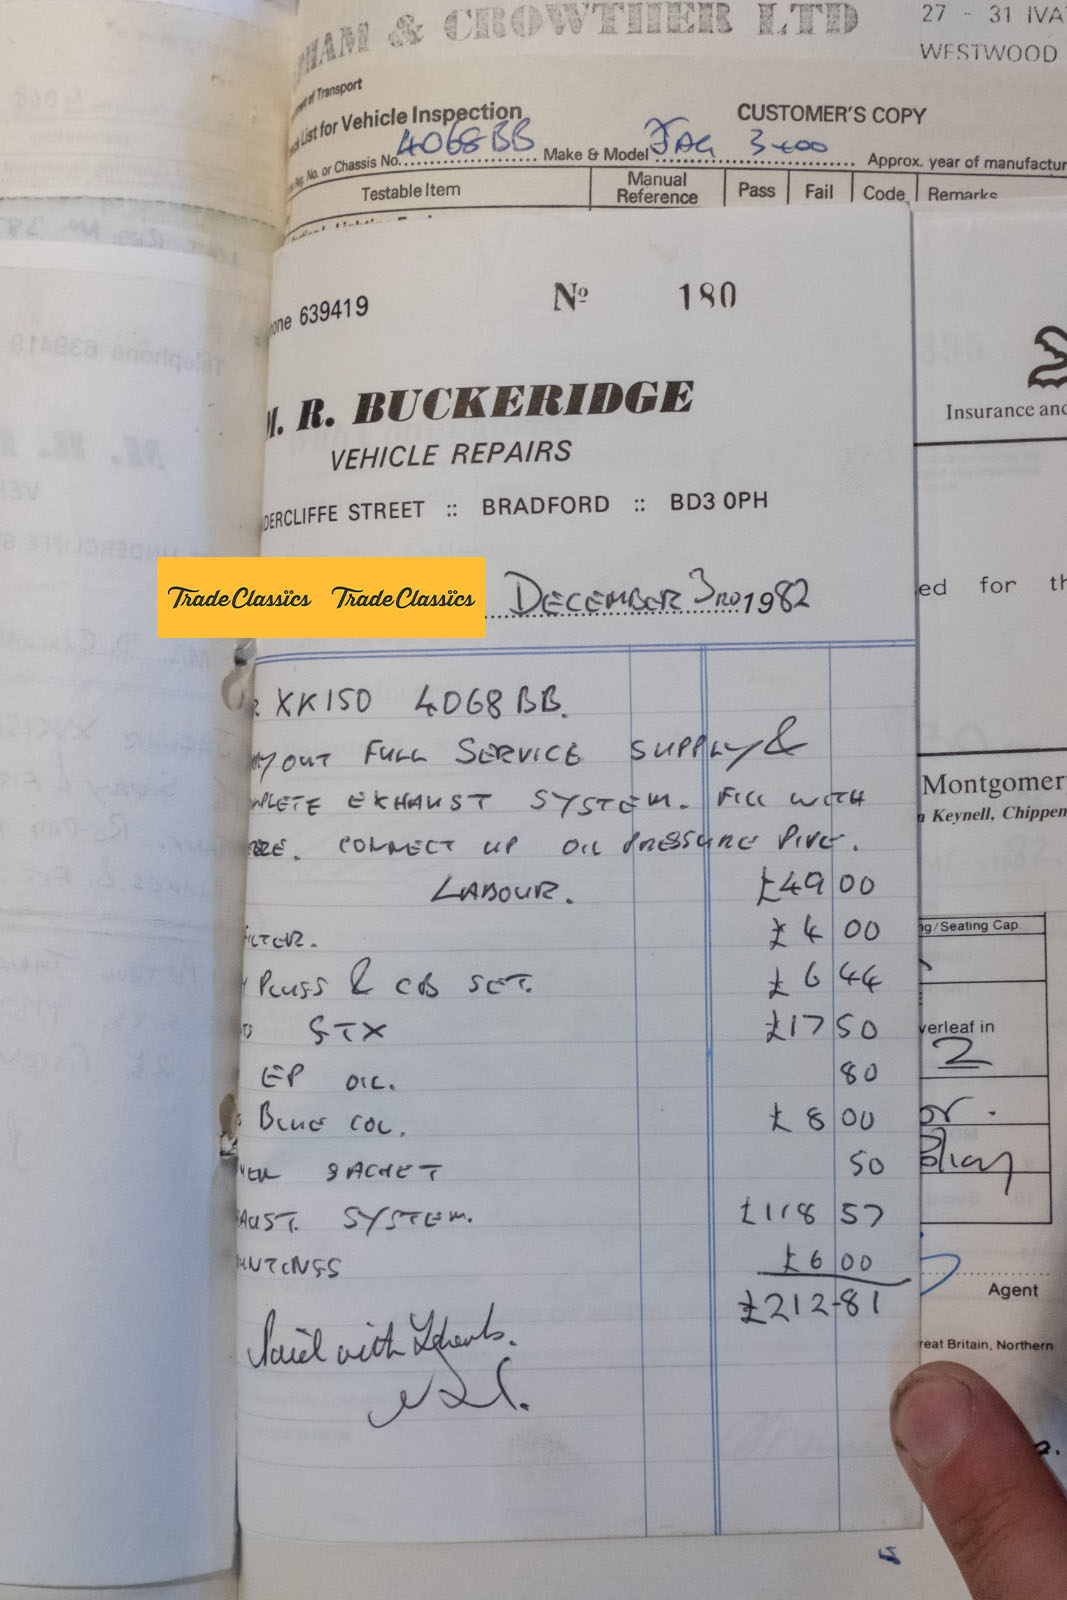 & CROWTHER LTD
27 - 31 IVA
WESTWOOD
of Transport
List for Vehicle Inspection
CUSTOMER'S COPY
Reg. No. or Chassis No. 4068BB Make & Model JAG 3400 Approx. year of manufactur
Testable Item Manual Reference Pass Fail Code Remarks
one 639419 Nº 180
M. R. BUCKERIDGE
VEHICLE REPAIRS
DERCLIFFE STREET :: BRADFORD :: BD3 0PH
Trade Classics Trade Classics
DECEMBER 3RD 1982
R XK150 4068 BB.
RY OUT FULL SERVICE SUPPLY &
MPLETE EXHAUST SYSTEM. FILL WITH
EEZE. CONNECT UP OIL PRESSURE PIPE.
LABOUR. £49 00
FILTER. £4 00
PLUGS & CB SET. £6 44
STX £17 50
EP OIL. 80
BLUE COL. £8 00
SACHET 50
AUST. SYSTEM. £118 57
UNTINGS £6 00
£212-81
Paid with Thanks.
Insurance and
ed for th
Montgomery
n Keynell, Chippen
ng/Seating Cap.
verleaf in
2
or.
Policy
Agent
reat Britain, Northern